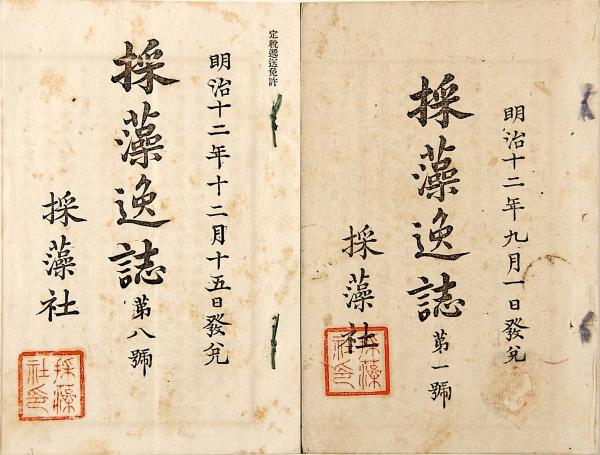 明治十二年九月一日發兌
採藻逸誌 第一號
採藻社
採藻社印
定税遞送免許
明治十二年十二月十五日發兌
採藻逸誌 第八號
採藻社
採藻社印